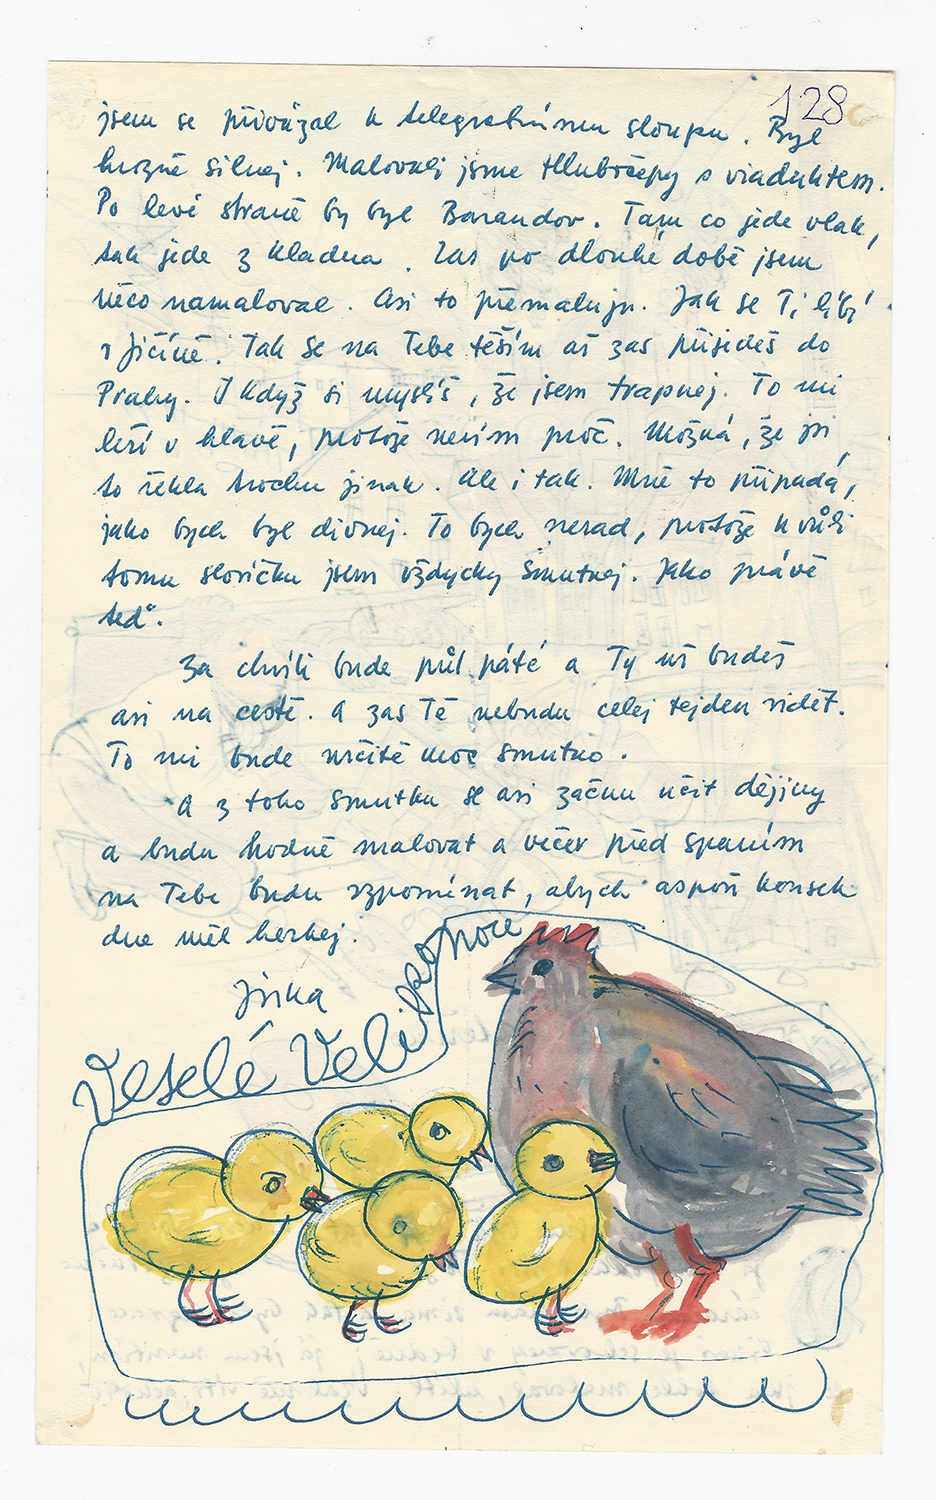 128
jsem se přivázal k telegrafnímu sloupu. Byl
hrozně silnej. Malovali jsme Hlubočepy s viaduktem.
Po levé straně by byl Barandov. Tam co jede vlak,
tak jede z Kladna. Zas po dlouhé době jsem
něco namaloval. Asi to přemaluju. Jak se Ti líbí
v Jičíně. Tak se na Tebe těším až zas přijedeš do
Prahy. I když si myslíš, že jsem trapnej. To mi
leží v hlavě, protože nevím proč. Možná, že jsi
to řekla trochu jinak. Ale i tak. Mně to připadá,
jako bych byl divnej. To bych nerad, protože kvůli
tomu slovíčku jsem vždycky smutnej. Jako právě
teď.
Za chvíli bude půl páté a Ty už budeš
asi na cestě. A zas Tě nebudu celej tejden vidět.
To mi bude určitě moc smutno.
A z toho smutku se asi začnu učit dějiny
a budu hodně malovat a večer před spaním
na Tebe budu vzpomínat, abych aspoň kousek
dne měl hezkej.
Jirka
Veselé Velikonoce